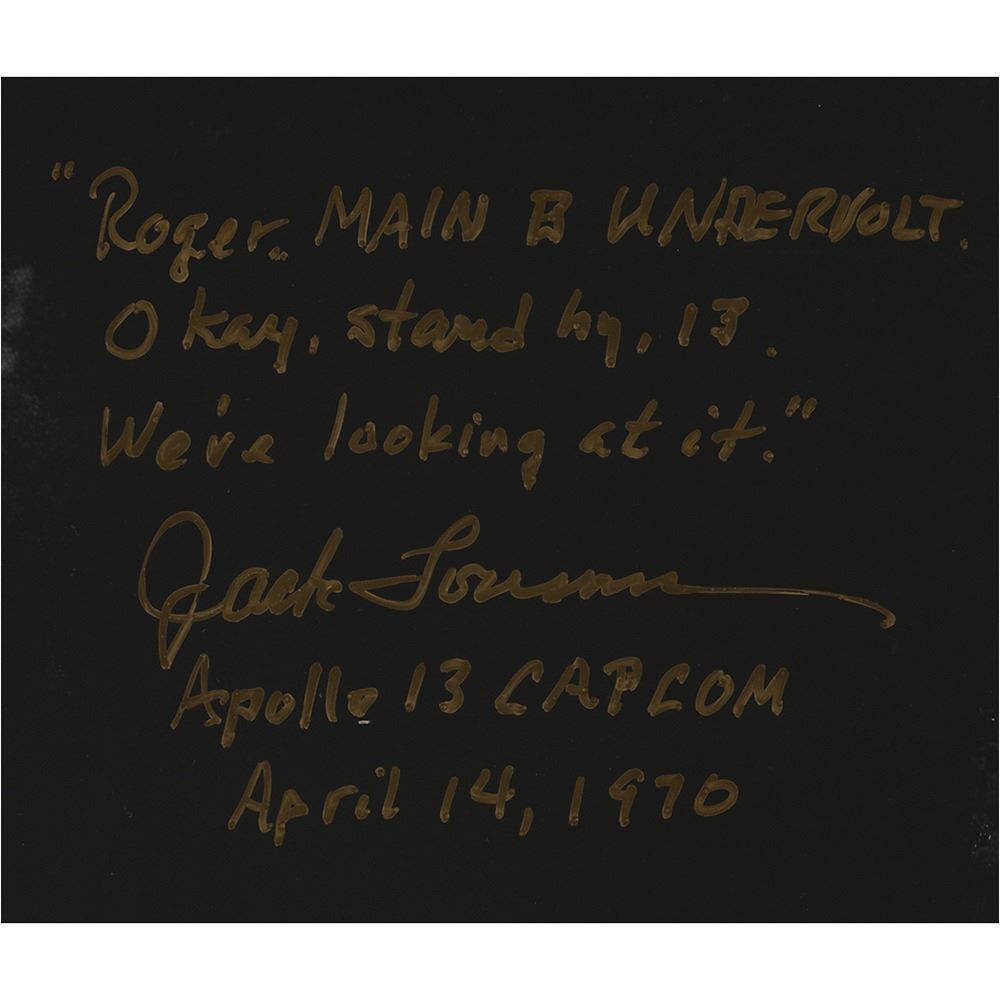 "Roger. MAIN B UNDERVOLT.
Okay, stand by, 13.
We're looking at it."
Jack Lousma
Apollo 13 CAPCOM
April 14, 1970